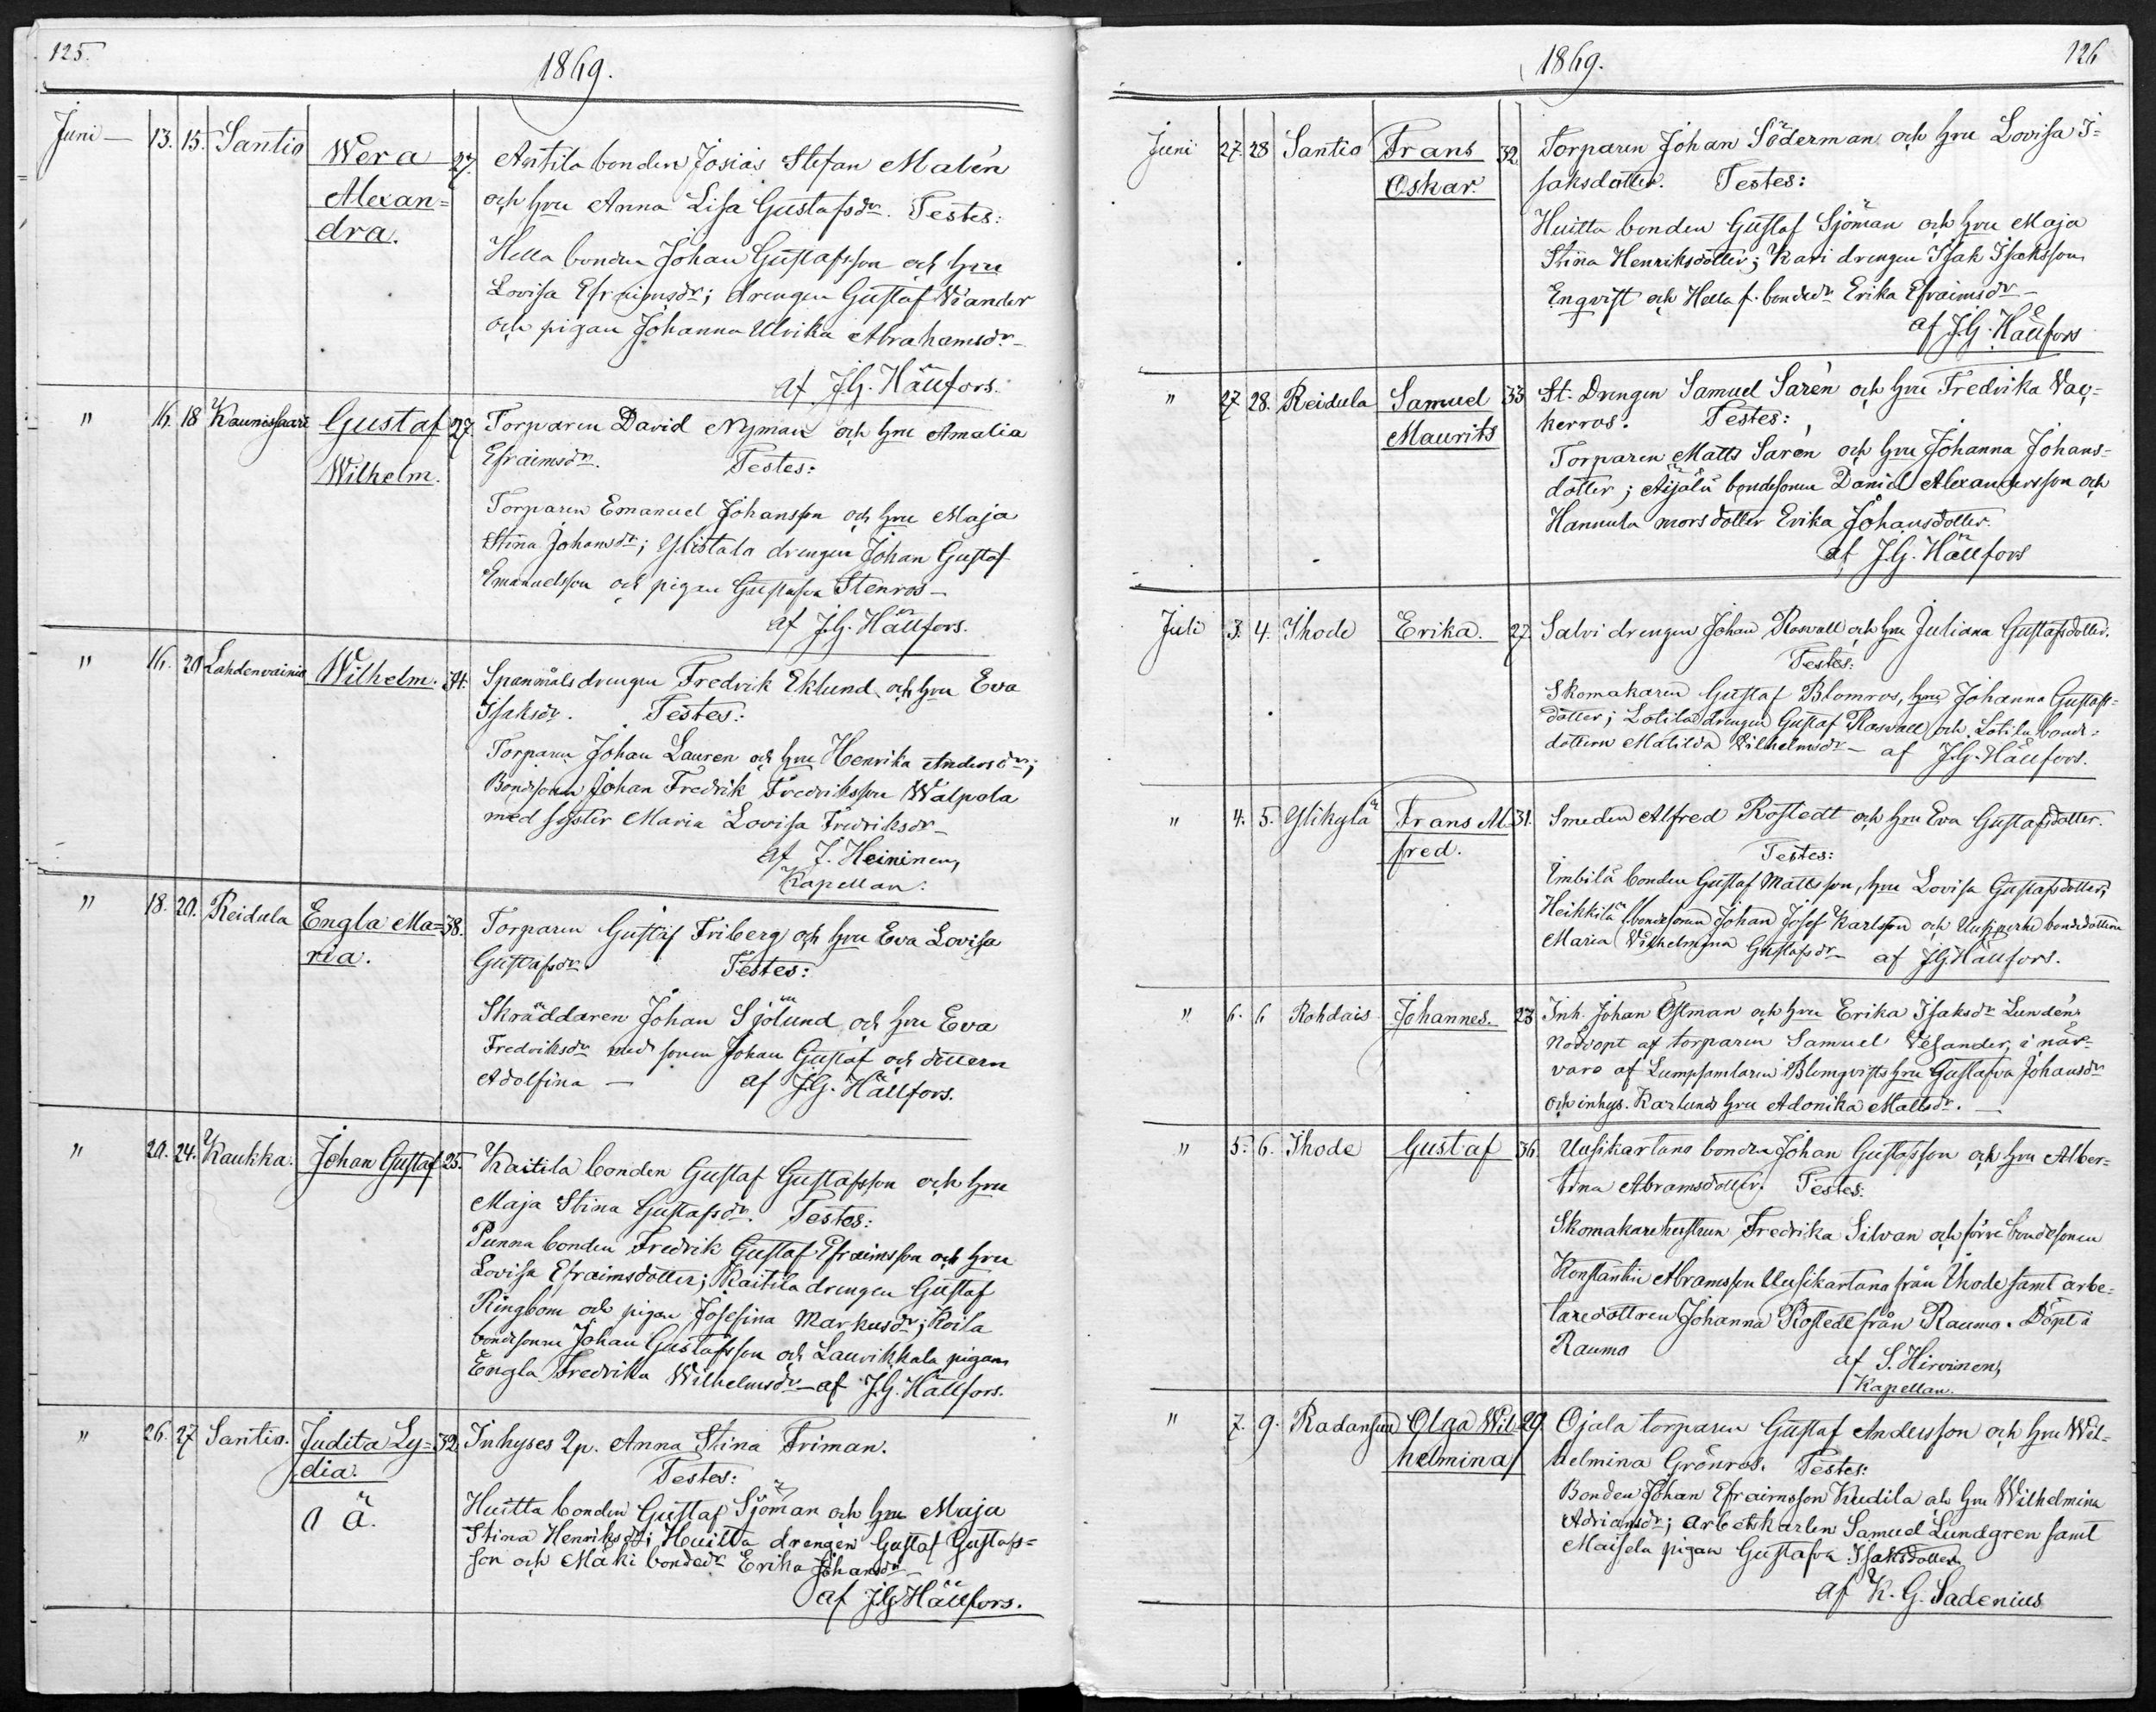 125.
1869.
Juni — 13. 15. Santio Wera 27. Anttila bonden Josias Stefan Malén
Alexan= och hru Anna Lisa Gustafsdr. Testes:
dra.
Hella bonden Johan Gustafsson och hru
Lovisa Efraimsdr; drengen Gustaf Wiander
och pigan Johanna Ulrika Abrahamsdr —
af J.G. Hällfors.
" 16. 18 Kaunissaari Gustaf 27. Torparen David Nyman och hru Amalia
Wilhelm. Efraimsdr. Testes:
Torparen Emanuel Johansson och hru Maja
Stina Johansdr; Ylistala drengen Johan Gustaf
Emanuelsson och pigan Gustafva Stenros —
af J.G. Hällfors.
" 16. 20 Lahdenvainio Wilhelm. 34. Spanmåls drengen Fredrik Eklund och hru Eva
Isaksdr. Testes:
Torparen Johan Lauren och hru Henrika Andersdr;
Bondsonen Johan Fredrik Fredriksson Walpola
med syster Maria Lovisa Fredriksdr —
af J. Heininen,
Kapellan.
" 18. 20. Reidula Engla Ma= 38. Torparen Gustaf Friberg och hru Eva Lovisa
ria. Gustafsdr. Testes:
Skräddaren Johan Sjölund och hru Eva
Fredriksdr med sonen Johan Gustaf och dottern
Adolfina — af J.G. Hällfors.
" 20. 24. Kaukka. Johan Gustaf 25. Kaitila bonden Gustaf Gustafsson och hru
Maja Stina Gustafsdr. Testes:
Punna bonden Fredrik Gustaf Efraimsson och hru
Lovisa Efraimsdotter; Kaitila drengen Gustaf
Ringbom och pigan Josefina Markusdr; Koila
bondesonen Johan Gustafsson och Lauvikkala pigan
Engla Fredrika Wilhelmsdr — af J.G. Hällfors.
" 26. 27 Santio. Judita Ly= 32. Inhyses Qp. Anna Stina Friman.
dia. Testes:
o ä. Huitta bonden Gustaf Sjöman och hru Maja
Stina Henriksdr; Huitta drengen Gustaf Gustafs=
son och Mäki bondedr Erika Johansdr —
af J.G. Hällfors.
1869. 126
Juni 27. 28 Santio Frans 32. Torparen Johan Söderman och hru Lovisa I=
Oskar. saksdotter. Testes:
Huitta bonden Gustaf Sjöman och hru Maja
Stina Henriksdotter; Kari drengen Isak Isaksson
Enqvist och Hella f. bondedr Erika Efraimsdr —
af J.G. Hällfors
" 27 28. Reidula Samuel 33 St. Drengen Samuel Sarén och hru Fredrika Vac=
Maurits kerros. Testes:
Torparen Matts Sarén och hru Johanna Johans=
dotter; Äijälä bondesonen Daniel Alexandersson och
Hannula morsdotter Erika Johansdotter.
af J.G. Hällfors
Juli 3. 4. Ihode Erika. 27. Salvi drengen Johan Rosvall och hru Juliana Gustafsdotter.
Testes:
Skomakaren Gustaf Blomros, hru Johanna Gustafs=
dotter; Lotila drengen Gustaf Rosvall och Lotila bond=
dottern Matilda Wilhelmsdr — af J.G. Hällfors.
" 4. 5. Ylikylä Frans Al= 31. Smeden Alfred Rostedt och hru Eva Gustafsdotter.
fred. Testes:
Imbilä bonden Gustaf Mattsson, hru Lovisa Gustafsdotter;
Heikkilä bondesonen Johan Josef Karlsson och Uusiperhe bondedottern
Maria Wilhelmina Gustafsdr — af J.G. Hällfors.
" 6. 6 Rohdais Johannes. 23 Inh. Johan Östman och hru Erika Isaksdr Lundén.
Nöddöpt af torparen Samuel Vesander, i när=
varo af Lumpsamlaren Blomqvists hru Gustafva Johansdr
och inhys. Karlunds hru Adonika Mattsdr. —
" 5. 6. Ihode Gustaf 36 Uusikartano bonden Johan Gustafsson och hru Alber=
tina Abramsdotter. Testes:
Skomakarehustrun Fredrika Silvan och förre bondesonen
Konstantin Abramsson Uusikartano från Ihode samt arbe=
taredottren Johanna Rostedt från Raumo. Döpt i
Raumo af S. Hirvinen,
Kapellan.
" 7. 9. Radansuu Olga Wil= 29. Ojala torparen Gustaf Andersson och hru Wil=
helmina helmina Grönros. Testes:
Bonden Johan Efraimsson Kudila och hru Wilhelmina
Adriansdr; arbetskarlen Samuel Lundgren samt
Maisela pigan Gustafva Isaksdotter
af K. G. Sadenius